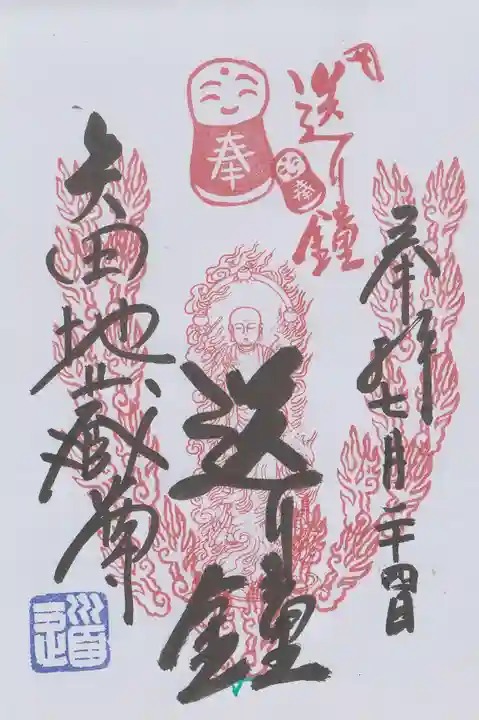 奉拝 七月二十四日
送り鐘
奉
奉
送り鐘
矢田地蔵尊